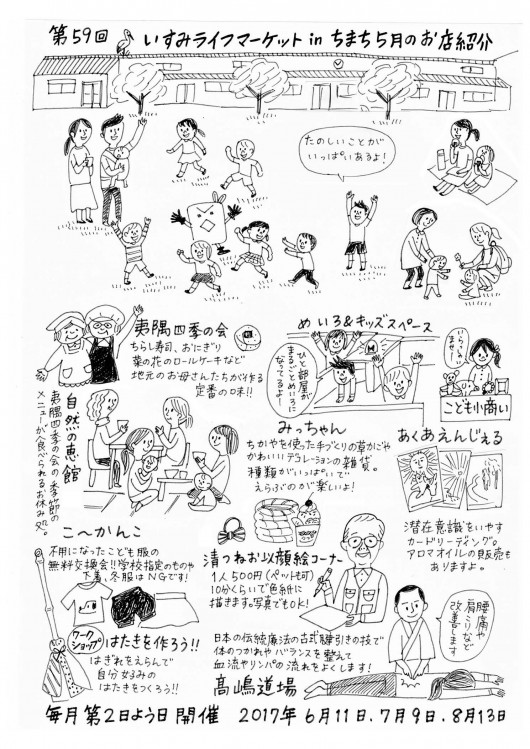 第59回 いすみライフマーケット in ちまち 5月のお店紹介
たのしいことが
いっぱいあるよ!
夷隅四季の会
ちらし寿司、おにぎり
菜の花のロールケーキなど
地元のお母さんたちが作る
定番の味!!
めいろ&キッズスペース
ひと部屋が
まるごとめいろに
なってるよー!
いらっしゃい
ませ!
こども小商い
自然の恵館
夷隅四季の会の季節の
メニューが食べられるお休み処。
みっちゃん
ちがやを使った手づくりの草かごや
かわいいデコレーションの雑貨。
種類がいっぱいで
えらぶのが楽しいよ!
あくあえんじぇる
潜在意識をいやす
カードリーディング。
アロマオイルの販売も
ありますよ。
こへかんこ
不用になったこども服の
無料交換会!!学校指定のものや
下着、冬服はNGです!
清つねお似顔絵コーナー
1人500円(ペットも可)
10分くらいで色紙に
描きます。写真でもOK!
ワーク
ショップ
はたきを作ろう!!
はぎれをえらんで
自分好みの
はたきをつくろう!!
日本の伝統療法の古式腱引きの技で
体のつかれや バランスを整えて
血流やリンパの流れをよくします!
高嶋道場
腰痛や
肩こりなど
改善します
毎月第2日よう日開催 2017年 6月11日、7月9日、8月13日